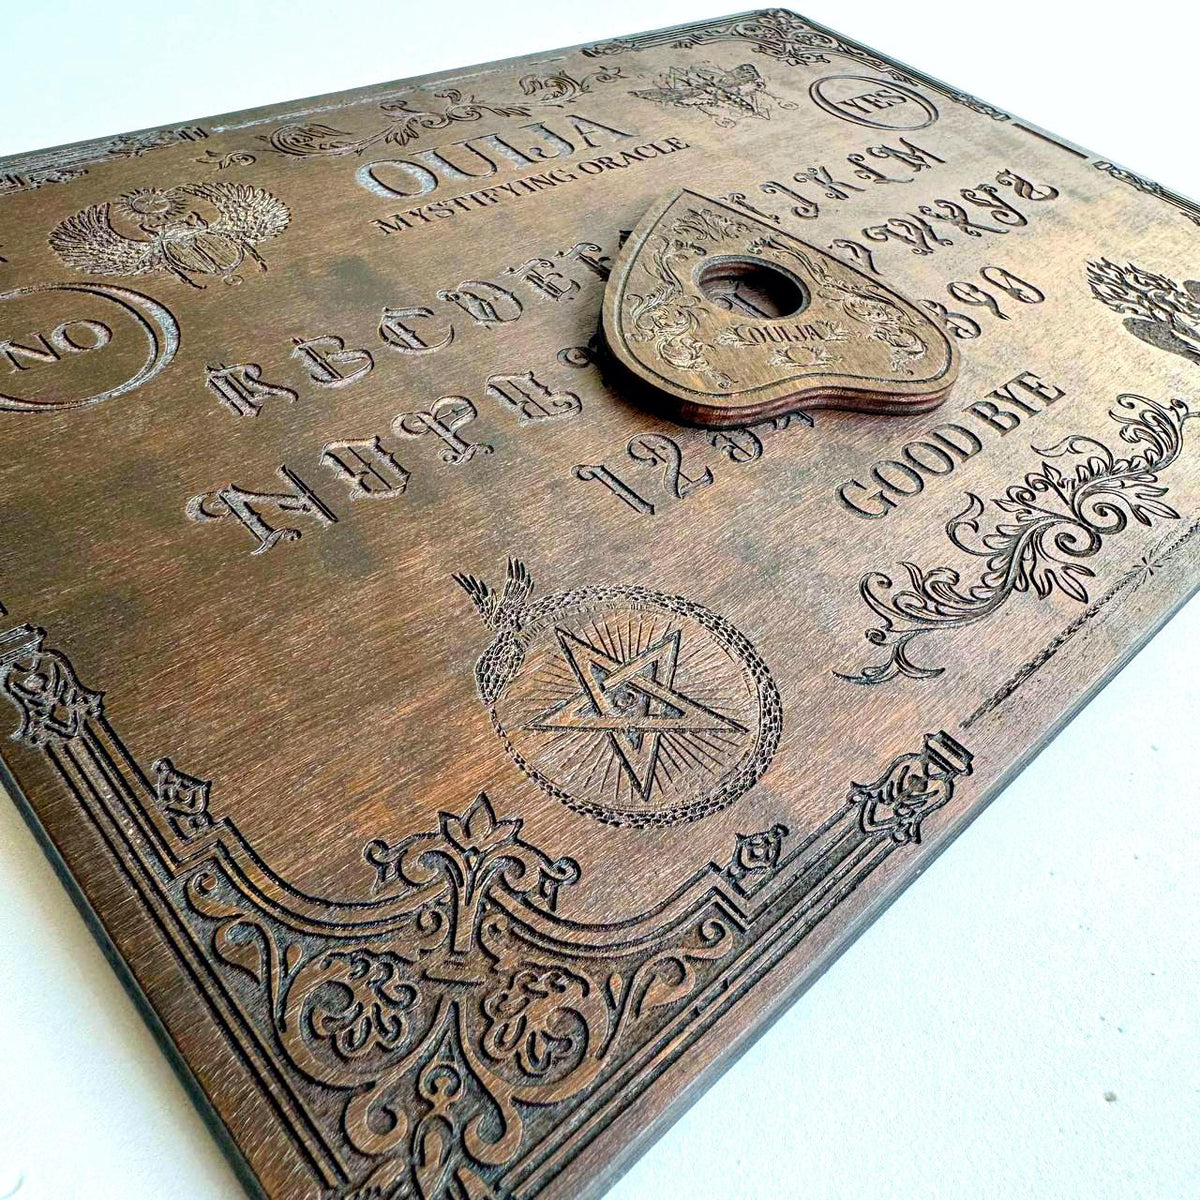 OUIJA
MYSTIFYING ORACLE
YES
NO
A B C D E F J K L M
N O P Q W X Y Z
1 2 3 4 8 9 0
OUIJA
GOOD BYE